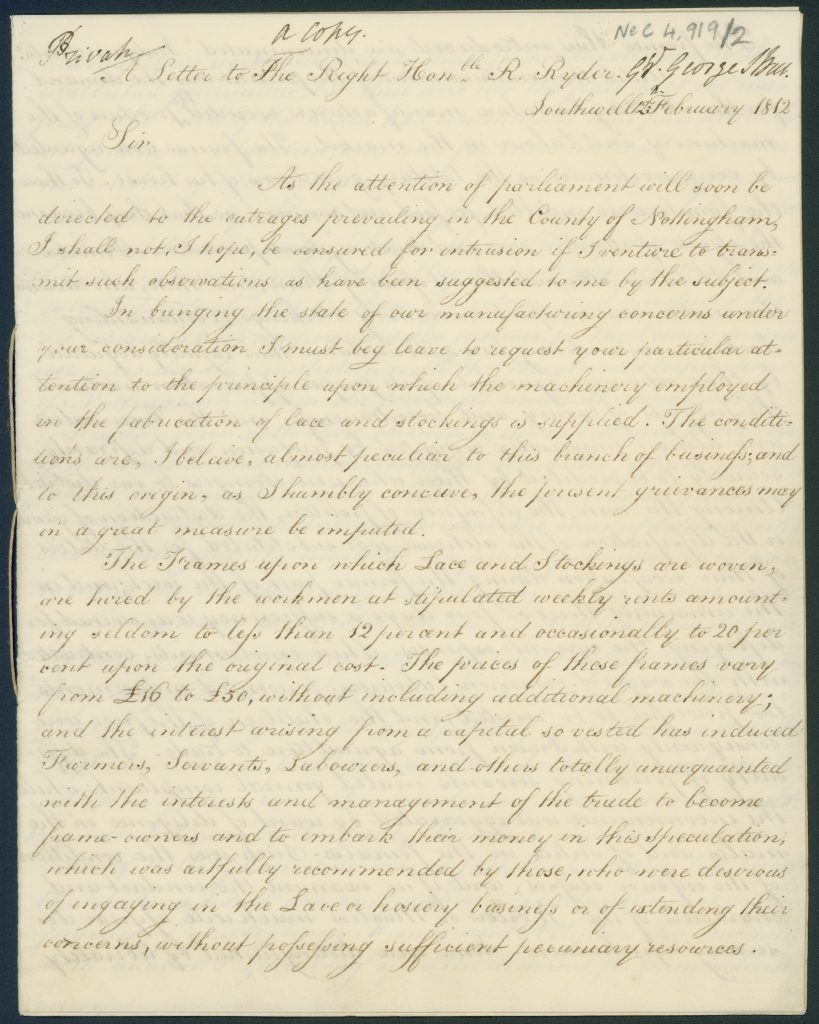 Private
a copy.
Ne C 4,919/2
A Letter to The Right Honble R. Ryder. George
Southwell 12 February 1812
Sir
As the attention of parliament will soon be
directed to the outrages prevailing in the County of Nottingham,
I shall not, I hope, be censured for intrusion if I venture to trans-
mit such observations as have been suggested to me by the subject.
In bringing the state of our manufacturing concerns under
your consideration I must beg leave to request your particular at-
tention to the principle upon which the machinery employed
in the fabrication of lace and stockings is supplied. The conditi-
ons are, I beleive, almost peculiar to this branch of business, and
to this origin, as I humbly conceive, the present grievances may
in a great measure be imputed.
The Frames upon which Lace and Stockings are woven,
are hired by the workmen at stipulated weekly rents amount-
ing seldom to less than 12 percent and occasionally to 20 per
cent upon the original cost. The prices of these frames vary
from £16 to £50, without including additional machinery;
and the interest arising from a capital so vested has induced
Farmers, Servants, Labourers, and others totally unacquainted
with the interests and management of the trade to become
frame-owners and to embark their money in this speculation,
which was artfully recommended by those, who were desirous
of engaging in the Lace or hosiery business or of extending their
concerns, without possessing sufficient pecuniary resources.